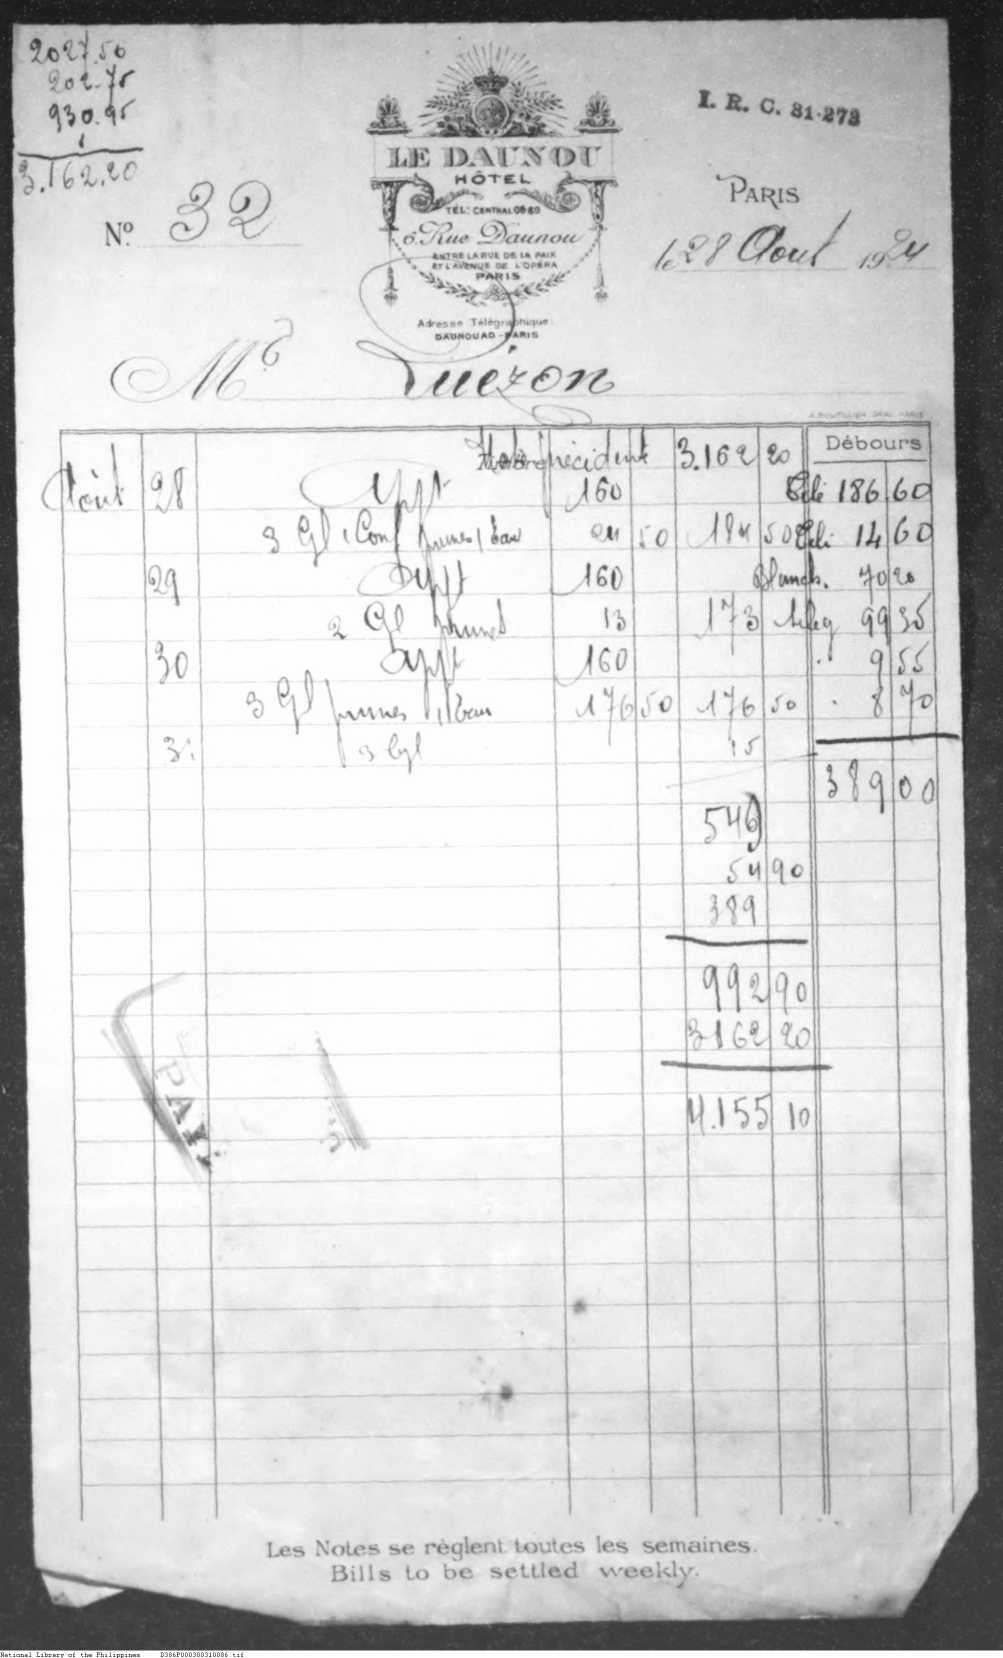 2027.50
202.75
930.95
3.162.20
I. R. C. 81-273
LE DAUNOU
HÔTEL
TÉL: CENTRAL 06-89
6. Rue Daunou
ENTRE LA RUE DE LA PAIX
ET L'AVENUE DE L'OPÉRA
PARIS
Adresse Télégraphique:
DAUNOUAO-PARIS
PARIS
le 28 Aout 1924
No. 32
Mr Quézon
Débours
précident 3.162 20
Août 28 Appt 160 186 60
3 Gl 1 Conf prunes 1 Eau 24 50 184 50 14 60
29 Appt 160 Blanch. 70 20
2 Gl prunes 13 173 teleg 99 35
30 Appt 160 9 55
3 Gl prunes 1 Eau 176 50 176 50 8 70
3 15
389 00
549
54 90
389
992 90
3162 20
4.155 10
PAY
Les Notes se règlent toutes les semaines.
Bills to be settled weekly.
National Library of the Philippines D386P000300310086.tif